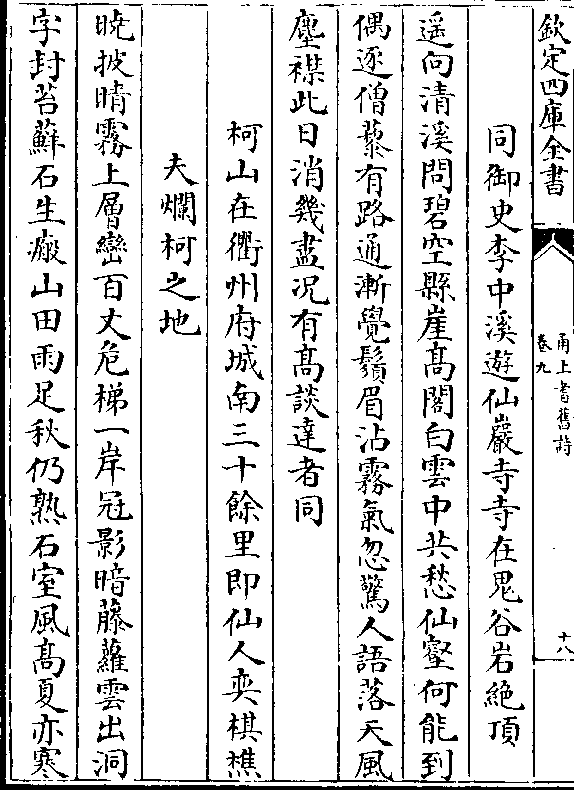 欽定四庫全書
甬上耆舊詩
卷九
十八
同御史李中溪遊仙巖寺寺在鬼谷岩絶頂
遥向清溪問碧空縣崖髙閣白雲中共愁仙壑何能到
偶逐僧藜有路通漸覺鬚眉沾霧氣忽驚人語落天風
塵襟此日消幾盡况有髙談達者同
柯山在衢州府城南三十餘里即仙人奕棋樵
夫爛柯之地
曉披晴霧上層巒百丈危梯一岸冠影暗藤蘿雲出洞
字封苔蘚石生瘢山田雨足秋仍熟石室風髙夏亦寒